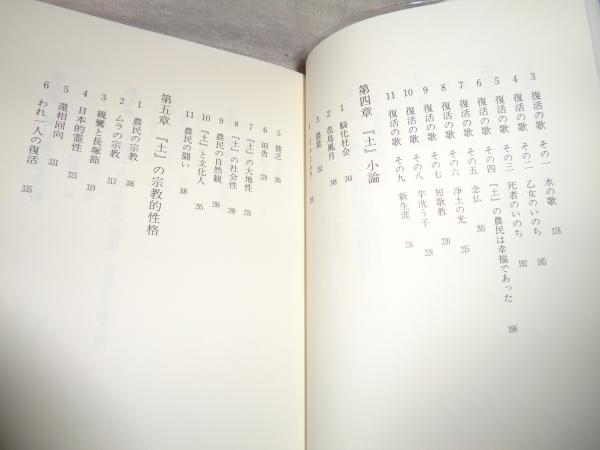 3 復活の歌 その一 水の歌 178
4 復活の歌 その二 乙女のいのち 185
5 復活の歌 その三 死者のいのち 192
6 復活の歌 その四 『土』の農民は幸福であった 198
7 復活の歌 その五 念仏 205
8 復活の歌 その六 浄土の光 215
9 復活の歌 その七 短歌教 220
10 復活の歌 その八 芋洗う子 228
11 復活の歌 その九 新生涯 236
第四章 『土』小論
1 脳化社会 244
2 花鳥風月 248
3 農業 252
5 貧乏 265
6 田舎 270
7 『土』の大地性 274
8 『土』の社会性 280
9 農民の自然観 286
10 『土』と文化人 295
11 農民の闘い 300
第五章 『土』の宗教的性格
1 農民の宗教 306
2 ムラの宗教 313
3 親鸞と長塚節 319
4 日本的霊性 323
5 還相回向 331
6 われ一人の復活 335